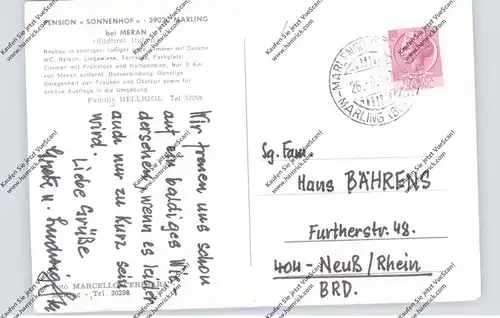 PENSION « SONNENHOF » - 39020 MARLING
bei MERAN
(Südtirol Italien)
Neubau in sonniger, ruhiger Lage. Zimmer mit Dusche
WC, Balkon, Liegewiese, Terrasse, Parkplatz
Zimmer mit Frühstück und Halbpension. Nur 3 Km
von Meran entfernt. Busverbindung. Günstige
Gelegenheit zur Trauben und Obstkur sowie für
schöne Ausflüge in die Umgebung.
Familie HELLRIGL Tel
Wir freuen uns schon
auf ein baldiges Wie-
dersehen, wenn es leider
auch nur zu kurz sein
wird.
Liebe Grüße
MARCELLO
Tel. 30298
MARLING
26
Sg. Fam.
Hans BÄHRENS
Furtherstr. 48.
404-Neuß/Rhein
BRD.
Kaufen Sie jetzt VueScan!
www.hamrick.com